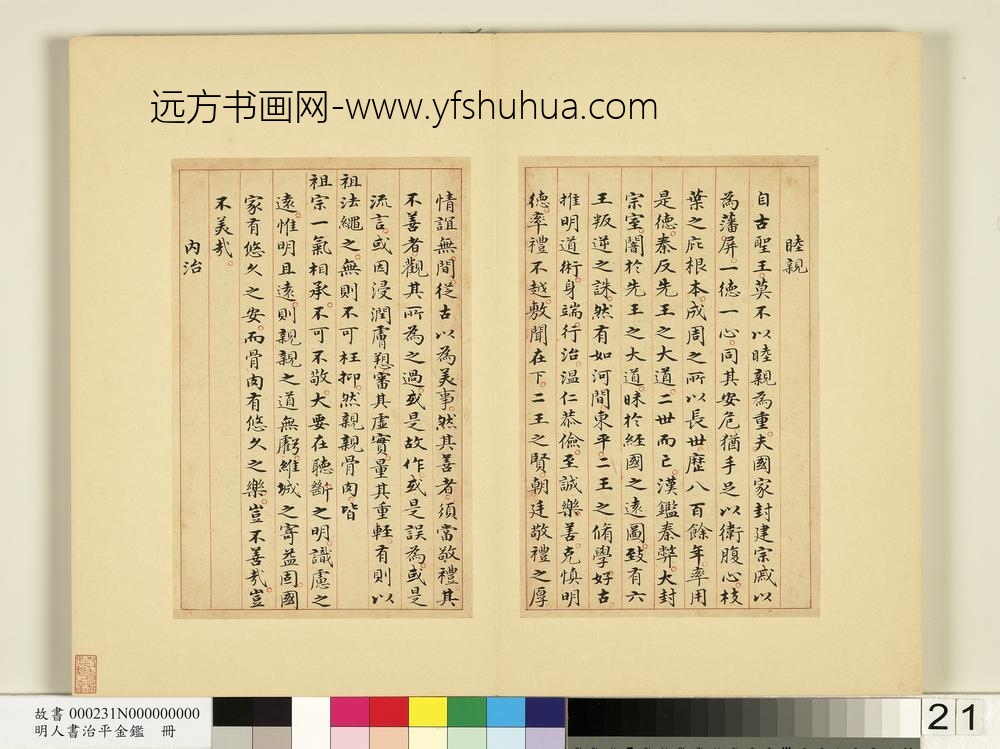 远方书画网-www.yfshuhua.com
睦親
自古聖王。莫不以睦親為重。夫國家封建宗戚以
為藩屏。一德一心。同其安危。猶手足以衛腹心。枝
葉之庇根本。成周之所以長世。歷八百餘年。率用
是德。秦反先王之大道。二世而亡。漢鑑秦弊。大封
宗室。闇於先王之大道。昧於經國之遠圖。致有六
王叛逆之誅。然有如河間東平。二王之脩學好古。
推明道術。身端行治。溫仁恭儉。至誠樂善。克慎明
德。率禮不越。敷聞在下。二王之賢。朝廷敬禮之厚
情誼無間。從古以為美事。然其善者。須當敬禮。其
不善者。觀其所為之過。或是故作。或是誤為。或是
流言。或因浸潤膚愬。審其虛實。量其重輕。有則以
祖法繩之。無則不可枉抑。然親親骨肉。皆
祖宗一氣相承。不可不敬。大要在聽斷之明。識慮之
遠。惟明且遠。則親親之道無虧。維城之寄益固。國
家有悠久之安。而骨肉有悠久之樂。豈不善哉。豈
不美哉。
內治
故書 000231N000000000
明人書治平金鑑 冊
21